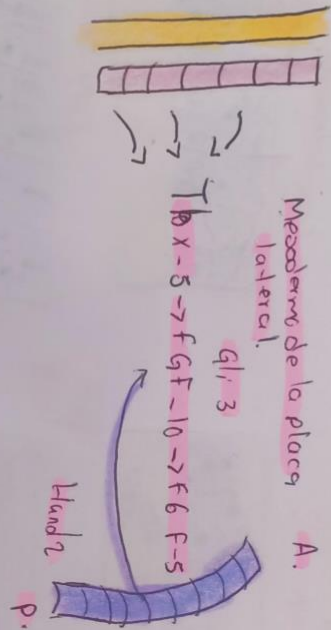 Mesodermo de la placa
lateral.
A.
Gli3
Tbx-5->fGf-10->f6f-5
Hand2
p.